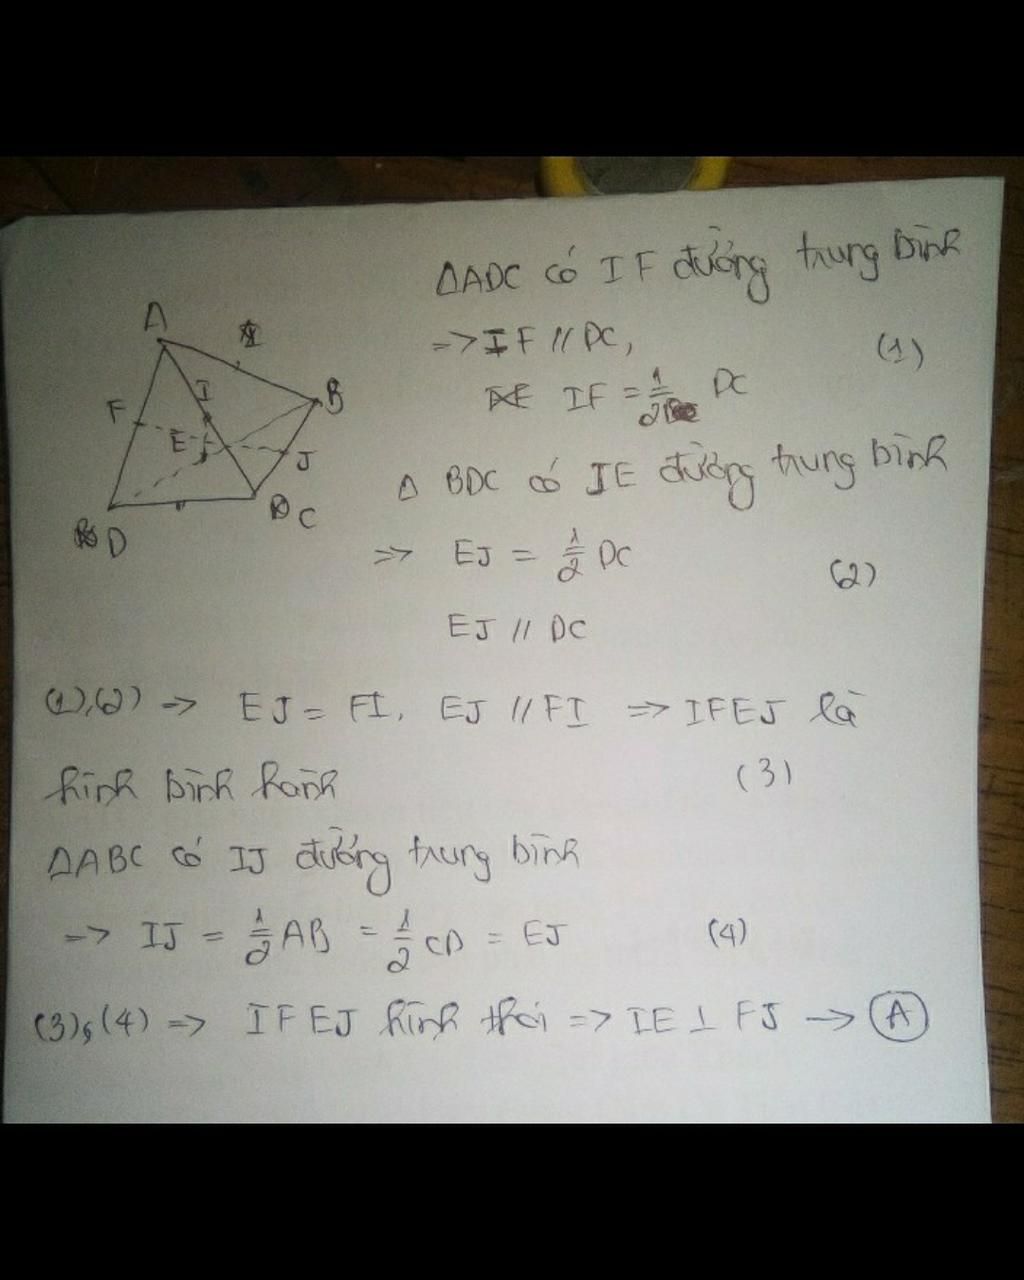 ΔADC có IF đường trung bình
=> IF // DC, (1)
IF = 1/2 DC
Δ BDC có JE đường trung bình
=> EJ = 1/2 DC (2)
EJ // DC
(1),(2) => EJ = FI, EJ // FI => IFEJ là
hình bình hành (3)
ΔABC có IJ đường trung bình
=> IJ = 1/2 AB = 1/2 CD = EJ (4)
(3),(4) => IFEJ hình thoi => IE ⊥ FJ → A
A
B
I
F
E
J
D
C